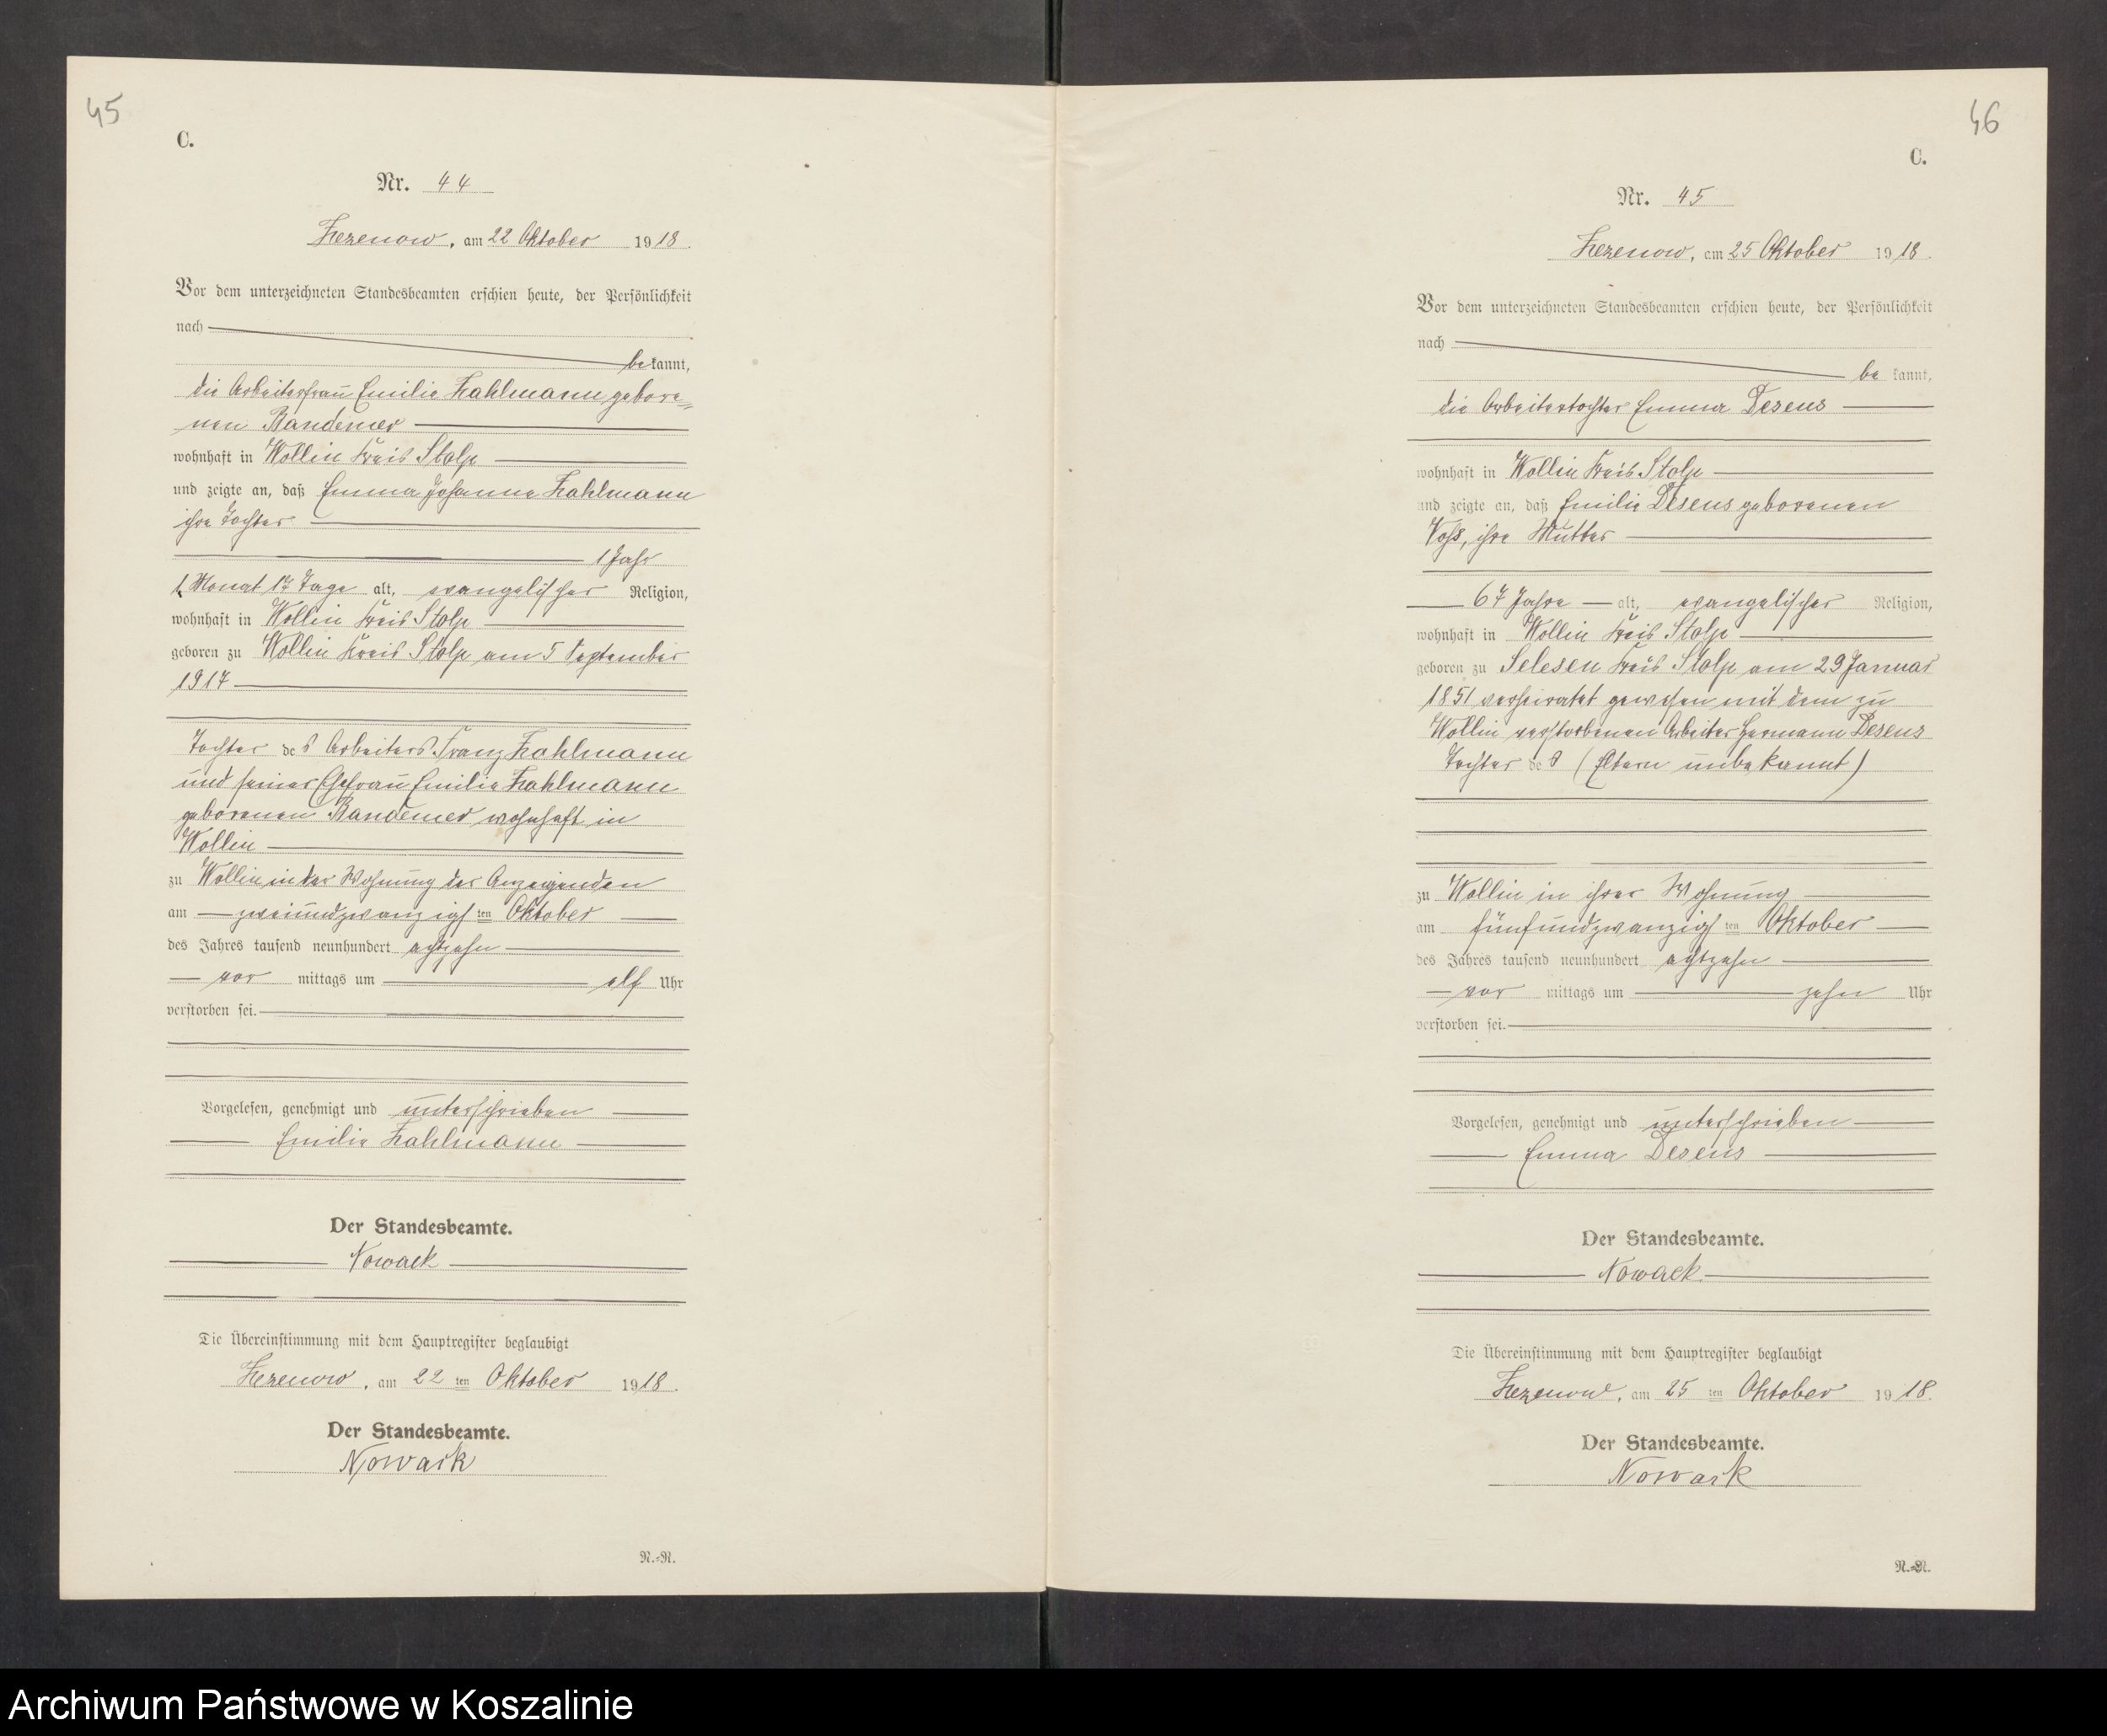 45
C.
Nr. 44
Zezenow, am 22 Oktober 1918.
Vor dem unterzeichneten Standesbeamten erschien heute, der Persönlichkeit
nach
bekannt,
die Arbeiterfrau Emilie Kahlmann gebore=
nen Bandemer
wohnhaft in Wollin Kreis Stolp
und zeigte an, daß Emma Johanna Kahlmann
ihre Tochter
1 Jahr
1 Monat 17 Tage alt, evangelischer Religion,
wohnhaft in Wollin Kreis Stolp
geboren zu Wollin Kreis Stolp am 5 September
1917
Tochter des Arbeiters Franz Kahlmann
und seiner Ehefrau Emilie Kahlmann
geborenen Bandemer wohnhaft in
Wollin
zu Wollin in der Wohnung der Anzeigenden
am zweiundzwanzigsten Oktober
des Jahres tausend neunhundert achtzehn
vor mittags um elf Uhr
verstorben sei.
Vorgelesen, genehmigt und unterschrieben
Emilie Kahlmann
Der Standesbeamte.
Nowack
Die Übereinstimmung mit dem Hauptregister beglaubigt
Zezenow, am 22 ten Oktober 1918.
Der Standesbeamte.
Nowack
N.=N.
46
C.
Nr. 45
Zezenow, am 25 Oktober 1918.
Vor dem unterzeichneten Standesbeamten erschien heute, der Persönlichkeit
nach
be kannt,
die Arbeitertochter Emma Desens
wohnhaft in Wollin Kreis Stolp
und zeigte an, daß Emilie Desens geborenen
Voß, ihre Mutter
67 Jahre alt, evangelischer Religion,
wohnhaft in Wollin Kreis Stolp
geboren zu Selesen Kreis Stolp am 29 Januar
1851 verheiratet gewesen mit dem zu
Wollin verstorbenen Arbeiter Hermann Desens
Tochter des (Eltern unbekannt)
zu Wollin in ihrer Wohnung
am fünfundzwanzigsten Oktober
des Jahres tausend neunhundert achtzehn
vor mittags um zehn Uhr
verstorben sei.
Vorgelesen, genehmigt und unterschrieben
Emma Desens
Der Standesbeamte.
Nowack
Die Übereinstimmung mit dem Hauptregister beglaubigt
Zezenow, am 25 ten Oktober 1918.
Der Standesbeamte.
Nowack
N.=N.
Archiwum Państwowe w Koszalinie